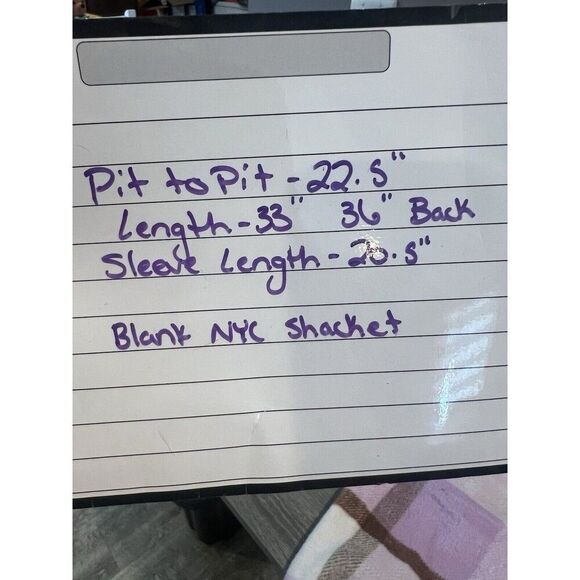 Pit to Pit - 22.5"
Length - 33" 36" Back
Sleeve Length - 20.5"
Blank NYC Shacket